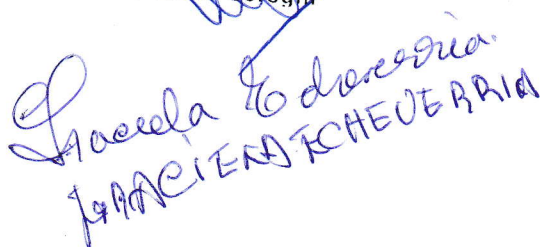 Graciela Echeverria.
GRACIELA ECHEVERRIA